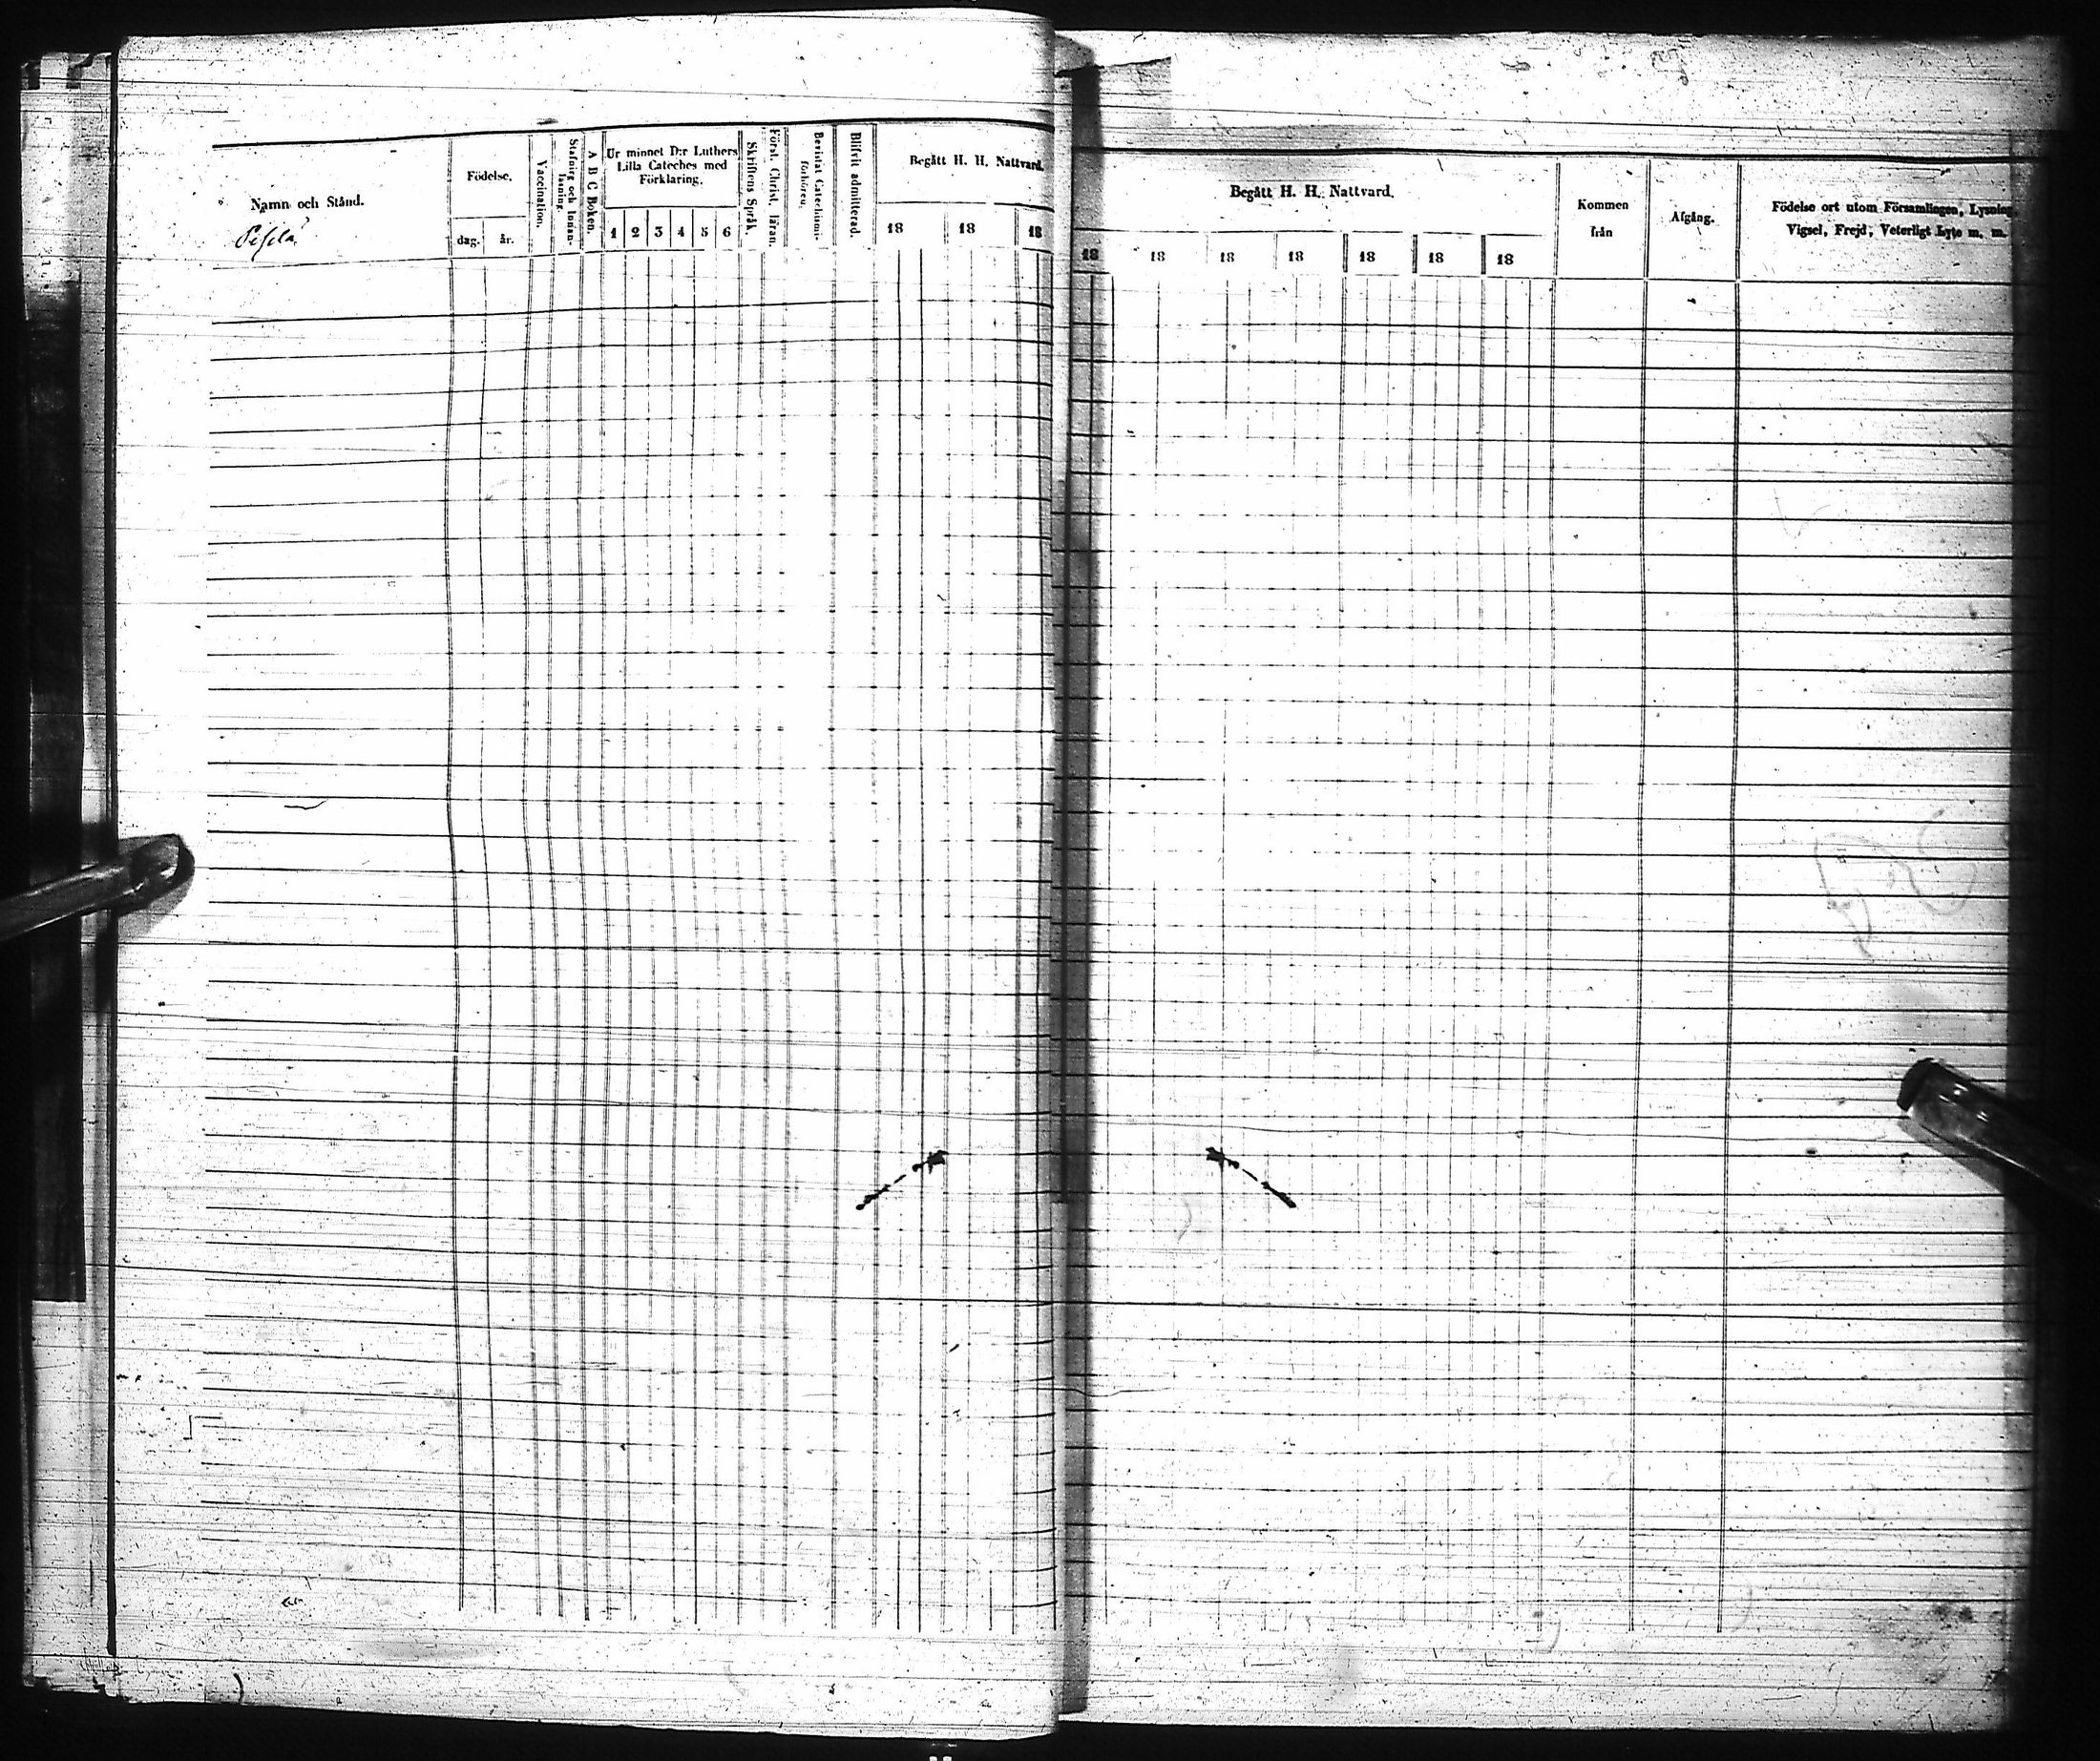 Namn och Stånd.
Födelse.
dag. år.
Vaccination.
Stafning och Innan-
läsning.
A B C Boken.
Ur minnet D:r Luthers
Lilla Cateches med
Förklaring.
1 2 3 4 5 6
Skriftens Språk.
Först. Christ. läran.
Bevistat Catechismi-
förhören.
Blifvit admitterad.
Begått H. H. Nattvard.
18 18 18
Begått H. H. Nattvard.
18 18 18 18 18 18 18
Kommen
från
Afgång.
Födelse ort utom Församlingen, Lysning,
Vigsel, Frejd, Veterligt Lyte m. m.